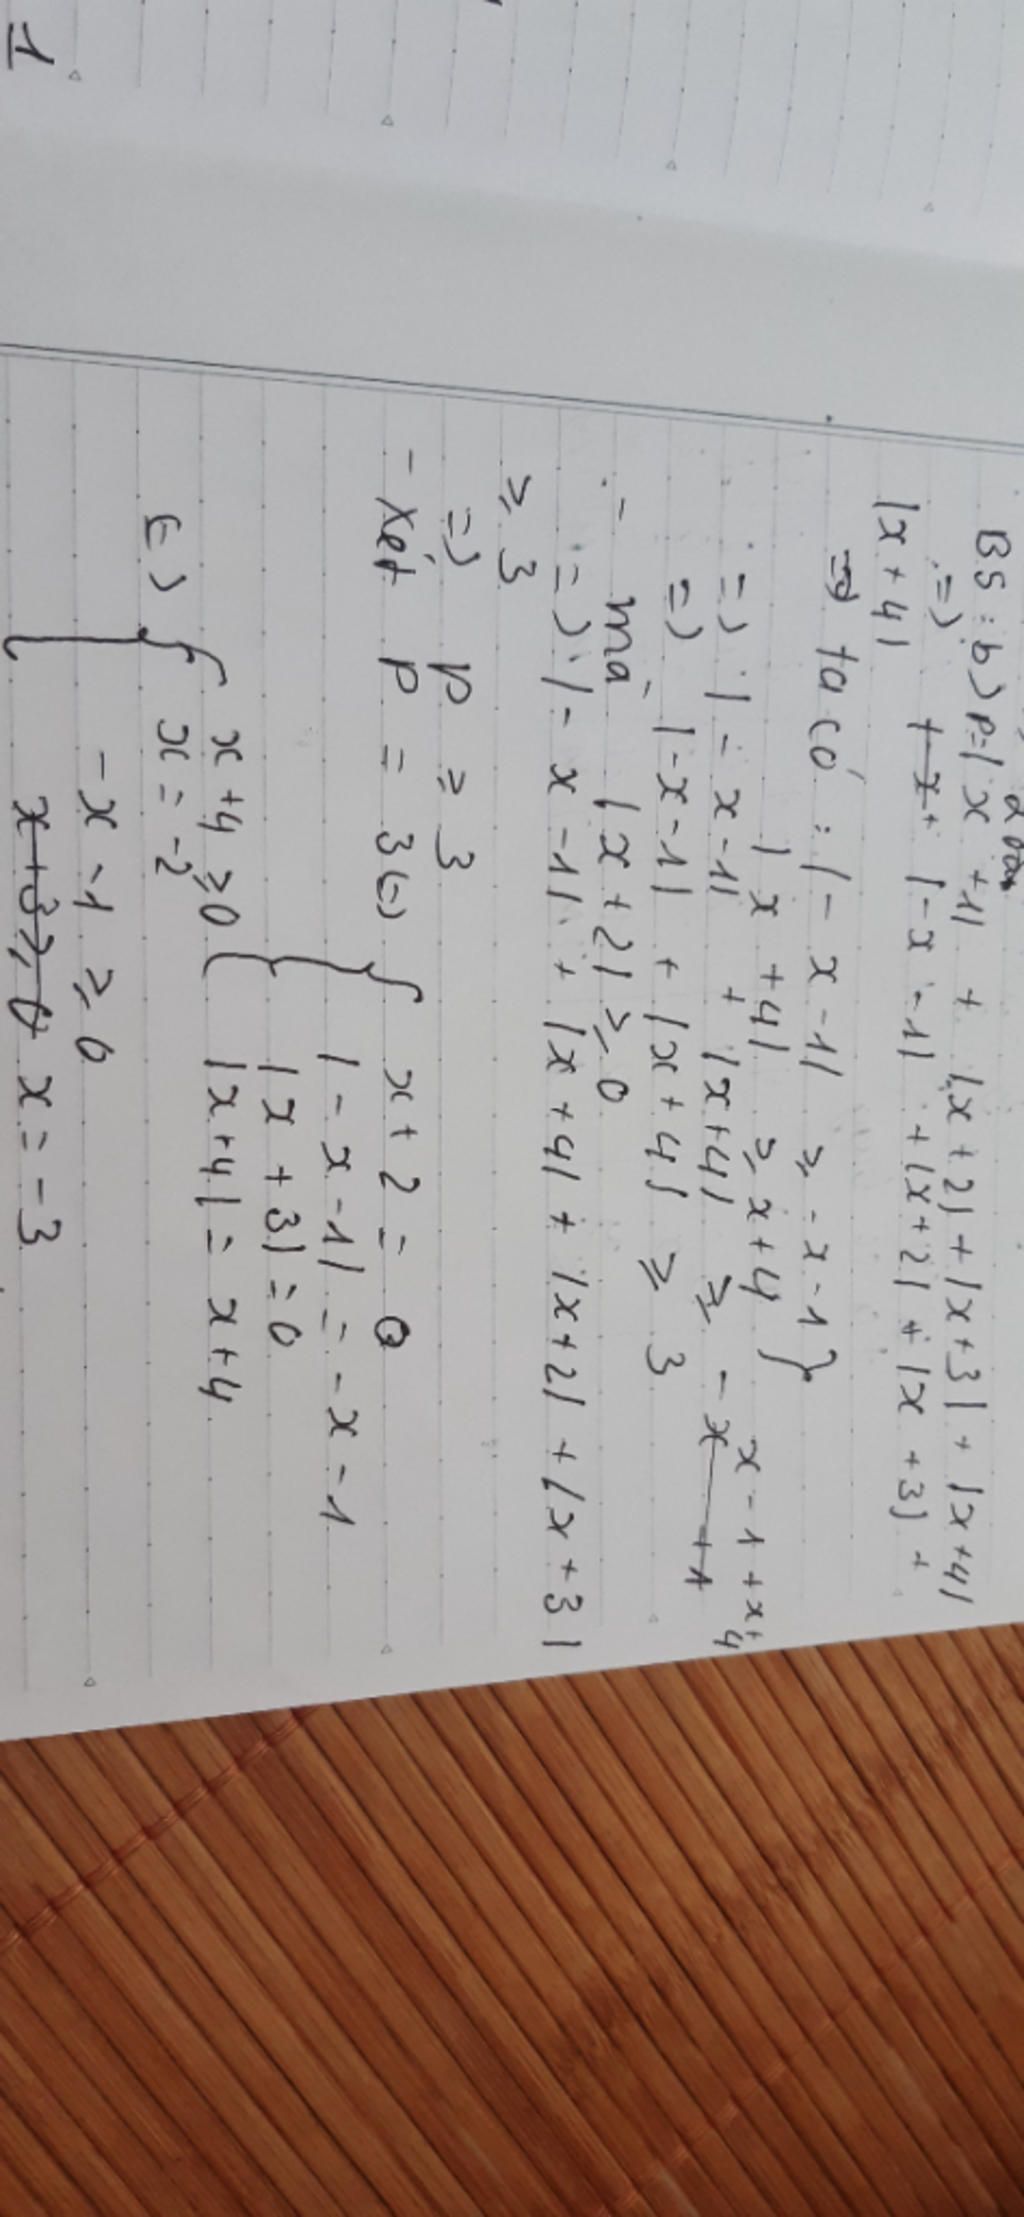 1
B5 : b) P = | x + 1 | + | x + 2 | + | x + 3 | + | x + 4 |
=> | - x - 1 | + | x + 2 | + | x + 3 | +
| x + 4 |
=> ta có : | - x - 1 | ≥ - x - 1 }
| x + 4 | ≥ x + 4
=> | - x - 1 | + | x + 4 | ≥ - x - 1 + x + 4
=> | - x - 1 | + | x + 4 | ≥ 3
- mà | x + 2 | ≥ 0
=> | - x - 1 | + | x + 4 | + | x + 2 | + | x + 3 |
≥ 3
=> P ≥ 3
- xét P = 3 (=) { x + 2 = 0
| - x - 1 | = - x - 1
| x + 3 | = 0
| x + 4 | = x + 4
(=) { x + 4 ≥ 0
x = - 2
- x - 1 ≥ 0
x + 3 ≥ 0 x = - 3